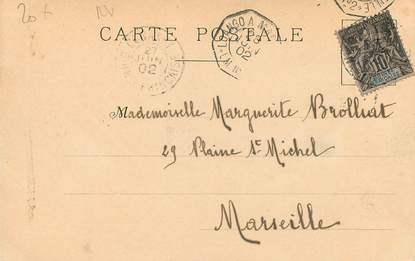 20 x
CARTE POSTALE
LOANGO A
02
27
JUIN
02
10
Mademoiselle Marguerite Brolliat
29 Plaine St Michel
Marseille